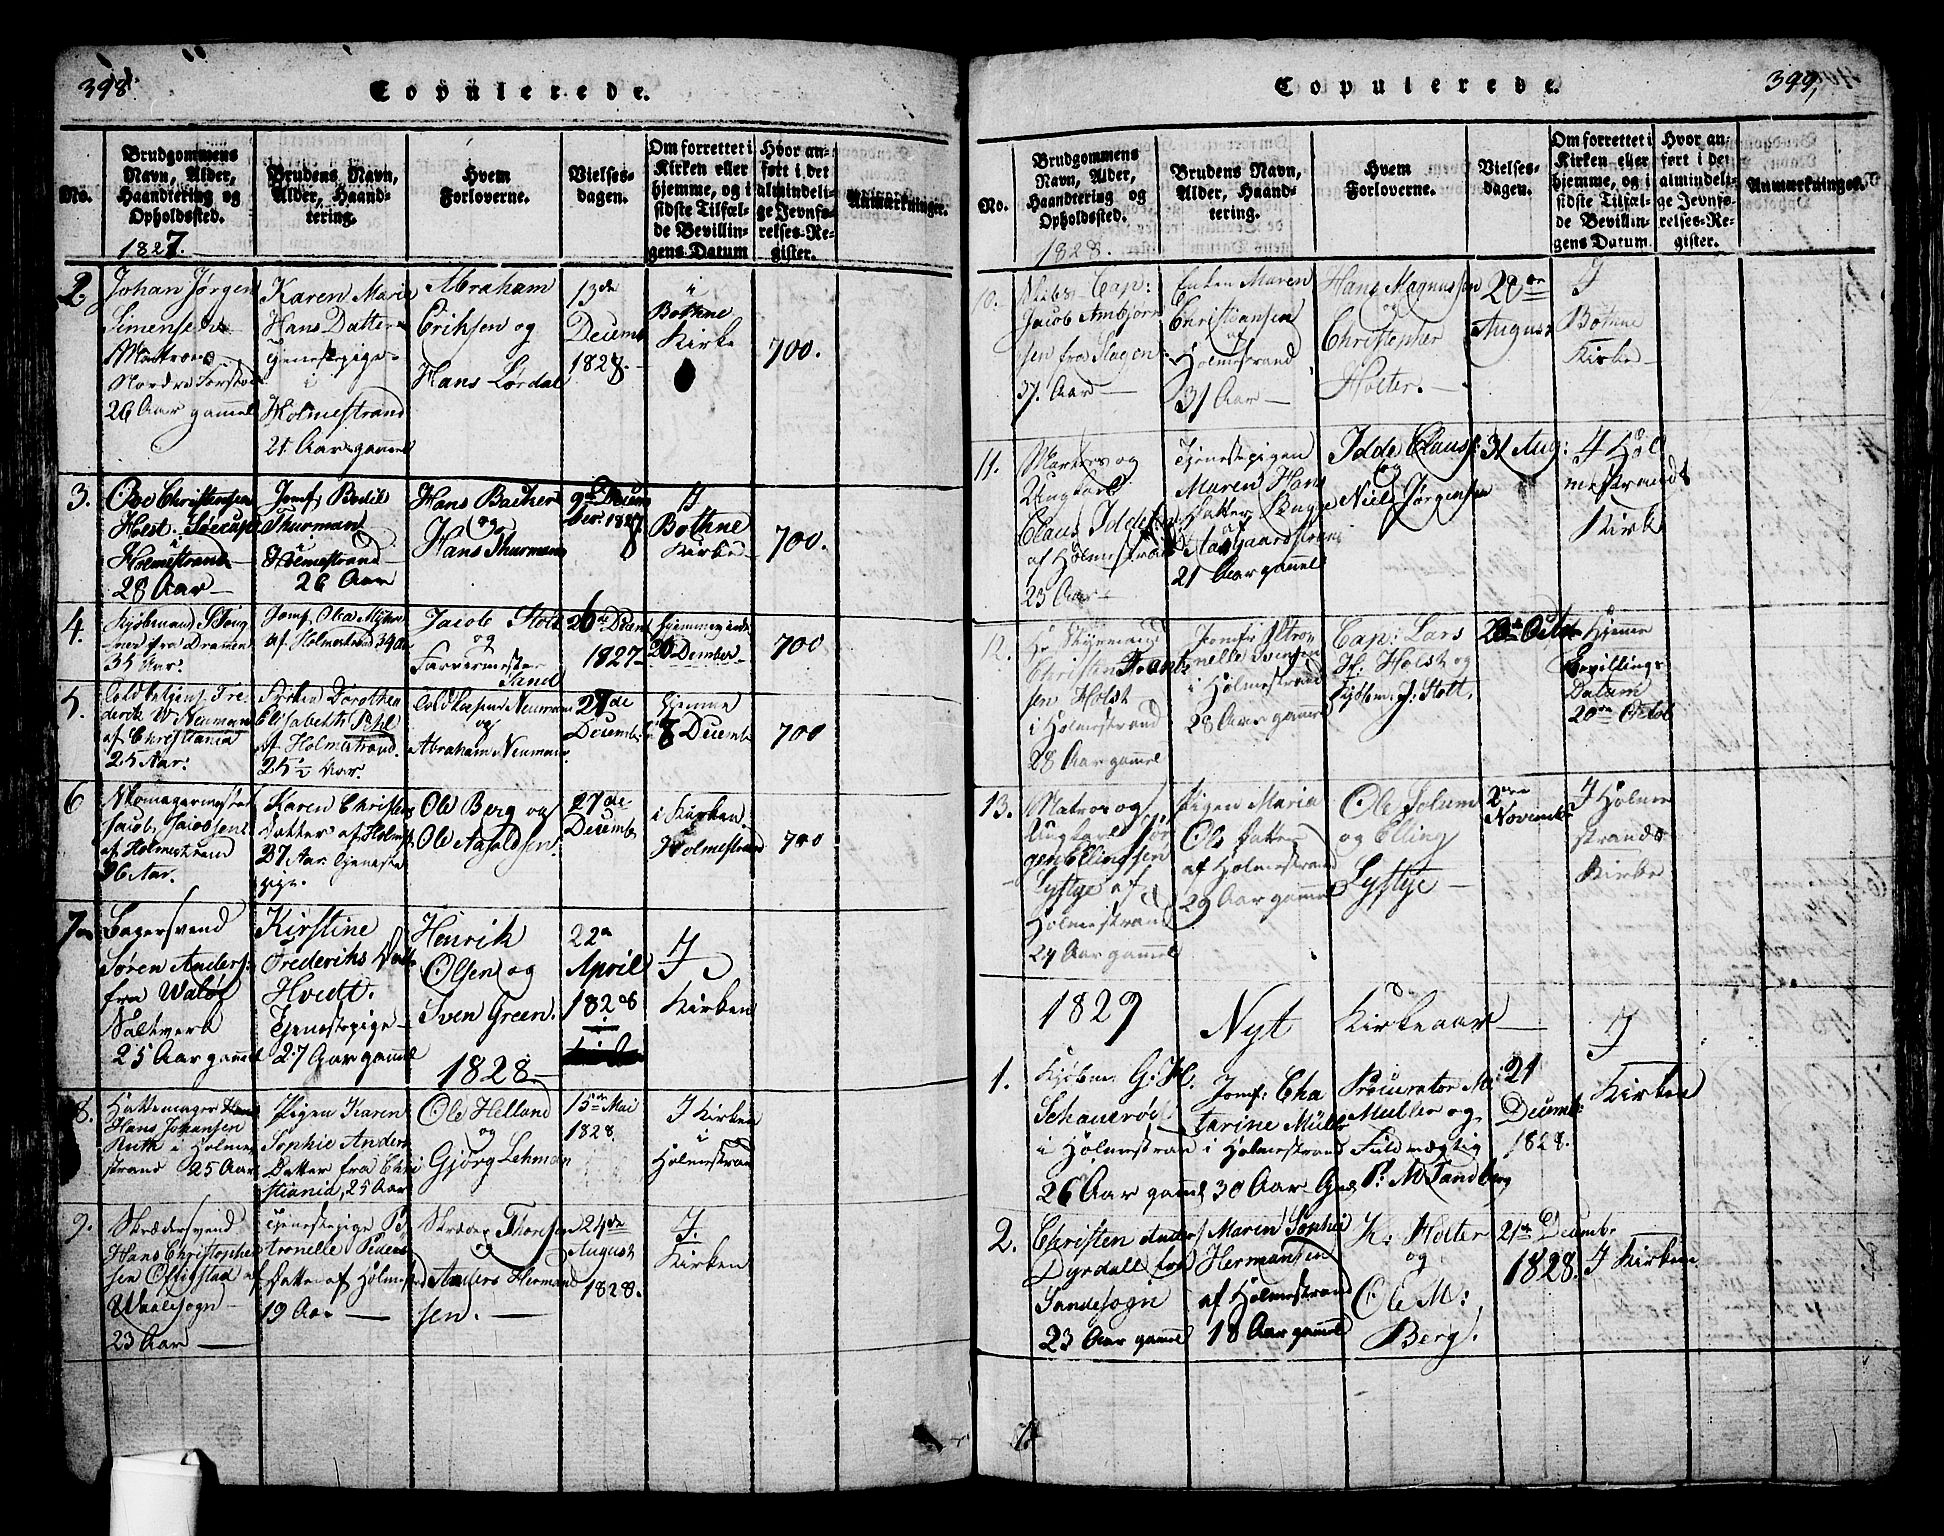 398.
Copulerede.
No.
Brudgommens
Navn, Alder,
Haandtering og
Opholdssted.
1827.
Brudens Navn,
Alder, Haand-
tering.
Hvem
Forloverne.
Vielses-
dagen.
Om forrettet i
Kirken eller
hjemme, og i
sidste Tilfæl-
de Bevillin-
gens Datum
Hvor an-
ført i det
almindeli-
ge Jevnfø-
relses-Re-
gister.
Anmærkninger.
2.
Johan Jørgen
Simensen
Matros
Nordre
26 Aar gamel
Karen Marie
Hans Datter
Tjenestepige
i
Holmestrand
21 Aar gamel
Abraham
Eriksen og
Hans Lørdal
13de
Decemb
1828.
i
Bothne
Kirke
700.
3.
Christensen
Holst
i
Holmestrand
28 Aar
Jomf: Bodil
Thurman
i
Holmestrand
26 Aar
Hans Backer
og
Hans Thurman
1827.
Bothne
Kirke
700.
4.
Kjøbmand
fra Drammen
35 Aar.
Jomf. Olea
af Holmestrand 34 Aar
Jacob Holt
og
Farvermester
Sand
26de Decem
1827
hjemme
26 December
700
5.
Frederik W Neuman
af Christiania
25 Aar.
Frøken Dorothea
Elisabeth Pihl
af Holmestrand.
25½ Aar.
Neuman
og
Abraham Neuman.
27de
Decemb
Hjemme
8 Decemb
700
6
Skomagermester
Jacob Jacobsen
af Holmestrand
36 Aar.
Karen Christens
Datter af Holmest
37 Aar Tjeneste
pige.
Ole Berg og
Ole Aasoldsen
27de
Decemb
i Kirken
Holmestrand
700
7
Bagersvend
Søren Anders:
fra Waløe
Saltverk
25 Aar gamel
Kirstine
Frederiks Datt
Hvidt.
Tjenestepige
27 Aar gamel
Henrik
Olsen og
Sven Green.
1828
22
April
1828
I
Kirken
8.
Hattemager
Hans Johansen
Ruth i Holme
strand 25 Aar
Pigen Karen
Sophie Anders
Datter fra Chri
stiania, 25 Aar
Ole Helland
og
Gjørg Lehman
15de Mai
1828.
I Kirken
i
Holmestrand
9.
Skrædersvend
Hans Christopher
sen Offigstad af
Waalesogn
23 Aar
Tjenestepige Pe
tronelle Peders
Datter af Holmest
19 Aar
Skræder Thoresen
og
Anders Herman
sen.
24de
August
1828.
I.
Kirken
399,
Copulerede.
No.
Brudgommens
Navn, Alder,
Haandtering og
Opholdssted.
1828.
Brudens Navn,
Alder, Haand-
tering.
Hvem
Forloverne.
Vielses-
dagen.
Om forrettet i
Kirken eller
hjemme, og i
sidste Tilfæl-
de Bevillin-
gens Datum.
Hvor an-
ført i det
almindeli-
ge Jevnfø-
relses-Re-
gister.
Anmærkninger.
10.
Skibs-Cap:
Jacob Ambjørn
sen fra Slagen
37. Aar
Enken Maren
Christiansen
af
Holmestrand
31 Aar
Hans Magnussen
og
Christopher
Holter.
August
I
Bothne
Kirke
11.
Matros og
Ungkarl
Claus Iddesen
af Holmestrand
23 Aar
Tjenestepigen
Maren Hans
Datter Bagge
af
Aasgaardstrand
21 Aar gamel
Idde Clauss:
og
Niels Jørgensen
31 Aug:
I Hol
mestrands
Kirke
12.
Hr Styrmand
Christen Frantz
sen Holst
i Holmestrand
28 Aar gamel
Jomfr: Petro
nelle Svensen
i Holmestrand
28 Aar gamel
Cap: Lars
H: Holst og
Kjøbm: J: Holt.
20de Octob
Hjemme
Bevillings
Datum
20de Octob
13.
Matros og
Ungkarl Jør
gen Ellingsen
Lystye af
Holmestrand
24 Aar gamel
Pigen Maria
Ols Datter
af Holmestrand
29 Aar gamel
Ole Solum
og Elling
Lystye
2den
Novembr
I Holme
strands
Kirke
1829 Nyt Kirkeaar
1.
Kjøbm: G: H.
Schauerøe
i Holmestrand
26 Aar gamel
Jomf: Cha
tarine Müller
i Holmestrand
30 Aar Gml
Procurator M:
Muller og
Fuldmægtig
P: M Tandberg
21
Decemb:
1828.
I
Kirken
2.
Christen Anders
Dyrdall fra
Sandesogn
23 Aar gamel
Maren Sophie
Hermansen
af Holmestrand
18 Aar gamel
K: Holter
og
Ole M:
Berg.
21de Decembr
1828.
I Kirken